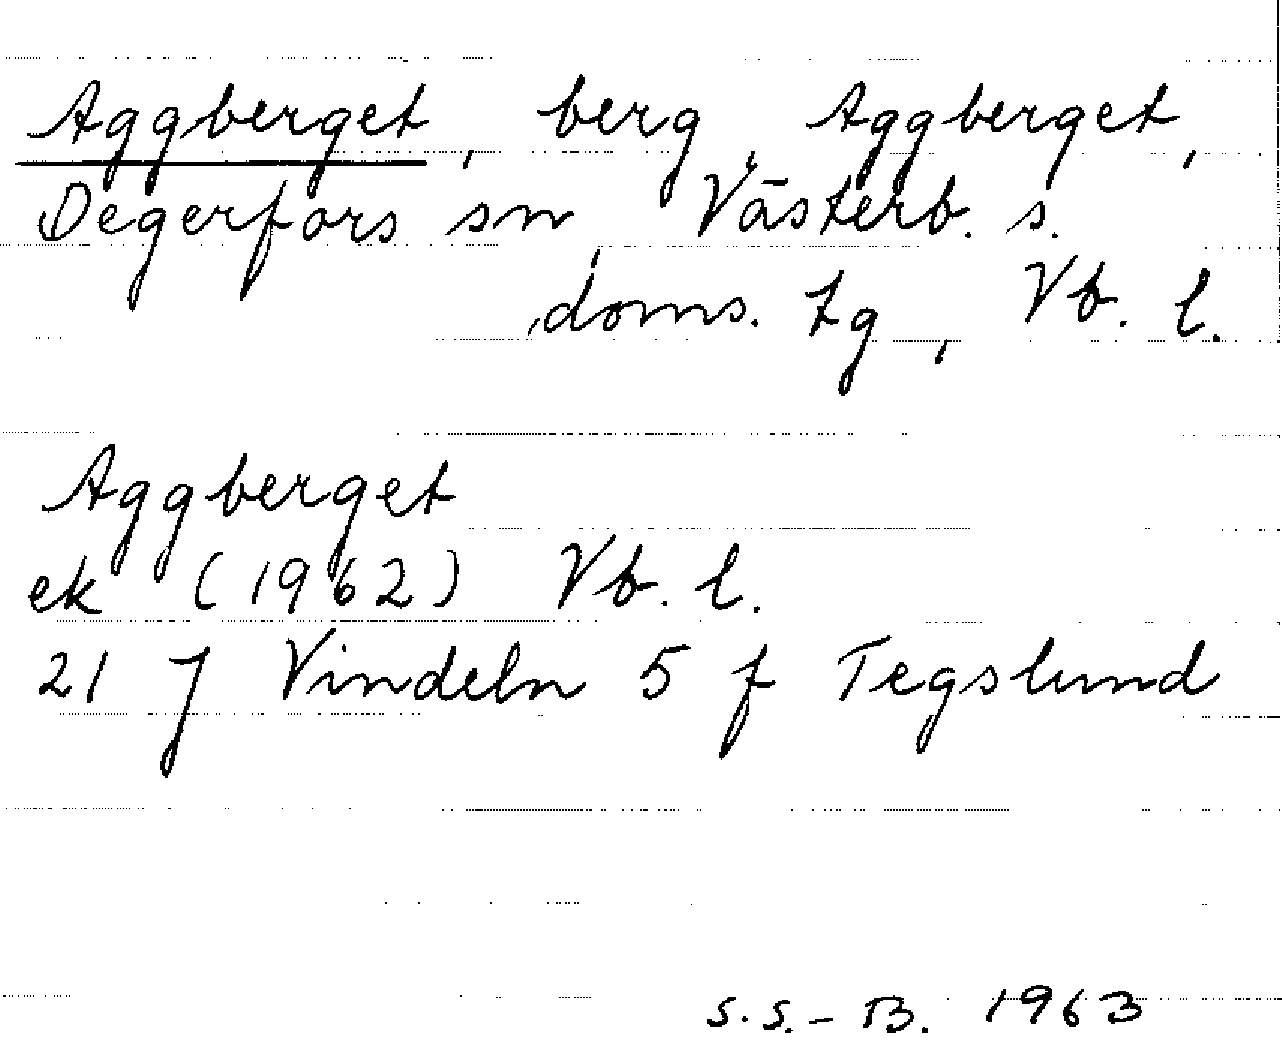 Aggberget, berg, Aggberget,
Degerfors sn, Västerb. s.
doms. tg, Vb. l.
Aggberget
ek (1962) Vb. l.
21 J Vindeln 5 f Tegslund
S.S.-B. 1963